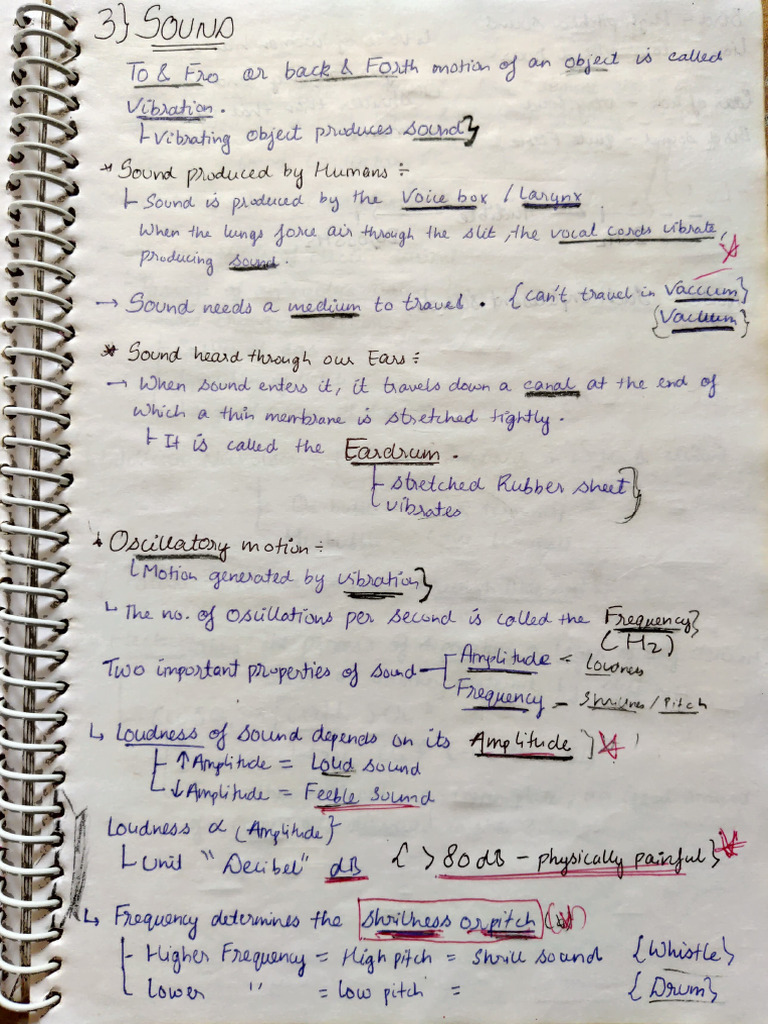 3} SOUND
To & Fro or back & Forth motion of an object is called
Vibration.
Vibrating object produces sound}
* Sound produced by Humans ÷
Sound is produced by the Voice box / Larynx
When the lungs force air through the slit, the vocal cords vibrate,
producing sound.
→ Sound needs a medium to travel. {can't travel in Vaccum}
{Vacuum}
* Sound heard through our Ears ÷
→ When sound enters it, it travels down a canal at the end of
which a thin membrane is stretched tightly.
It is called the Eardrum.
stretched Rubber sheet}
vibrates
* Oscillatory motion ÷
Motion generated by vibration}
The no. of Oscillations per second is called the Frequency}
(Hz)
Two important properties of sound Amplitude = loudness
Frequency = Shrillnes / Pitch
↳ Loudness of sound depends on its Amplitude}
↑ Amplitude = Loud sound
↓ Amplitude = Feeble Sound
Loudness ∝ (Amplitude}
Unit "Decibel" dB { > 80 dB - physically painful}
↳ Frequency determines the shrillness or pitch
Higher Frequency = High pitch = Shrill sound {Whistle}
Lower " = low pitch = {Drum}